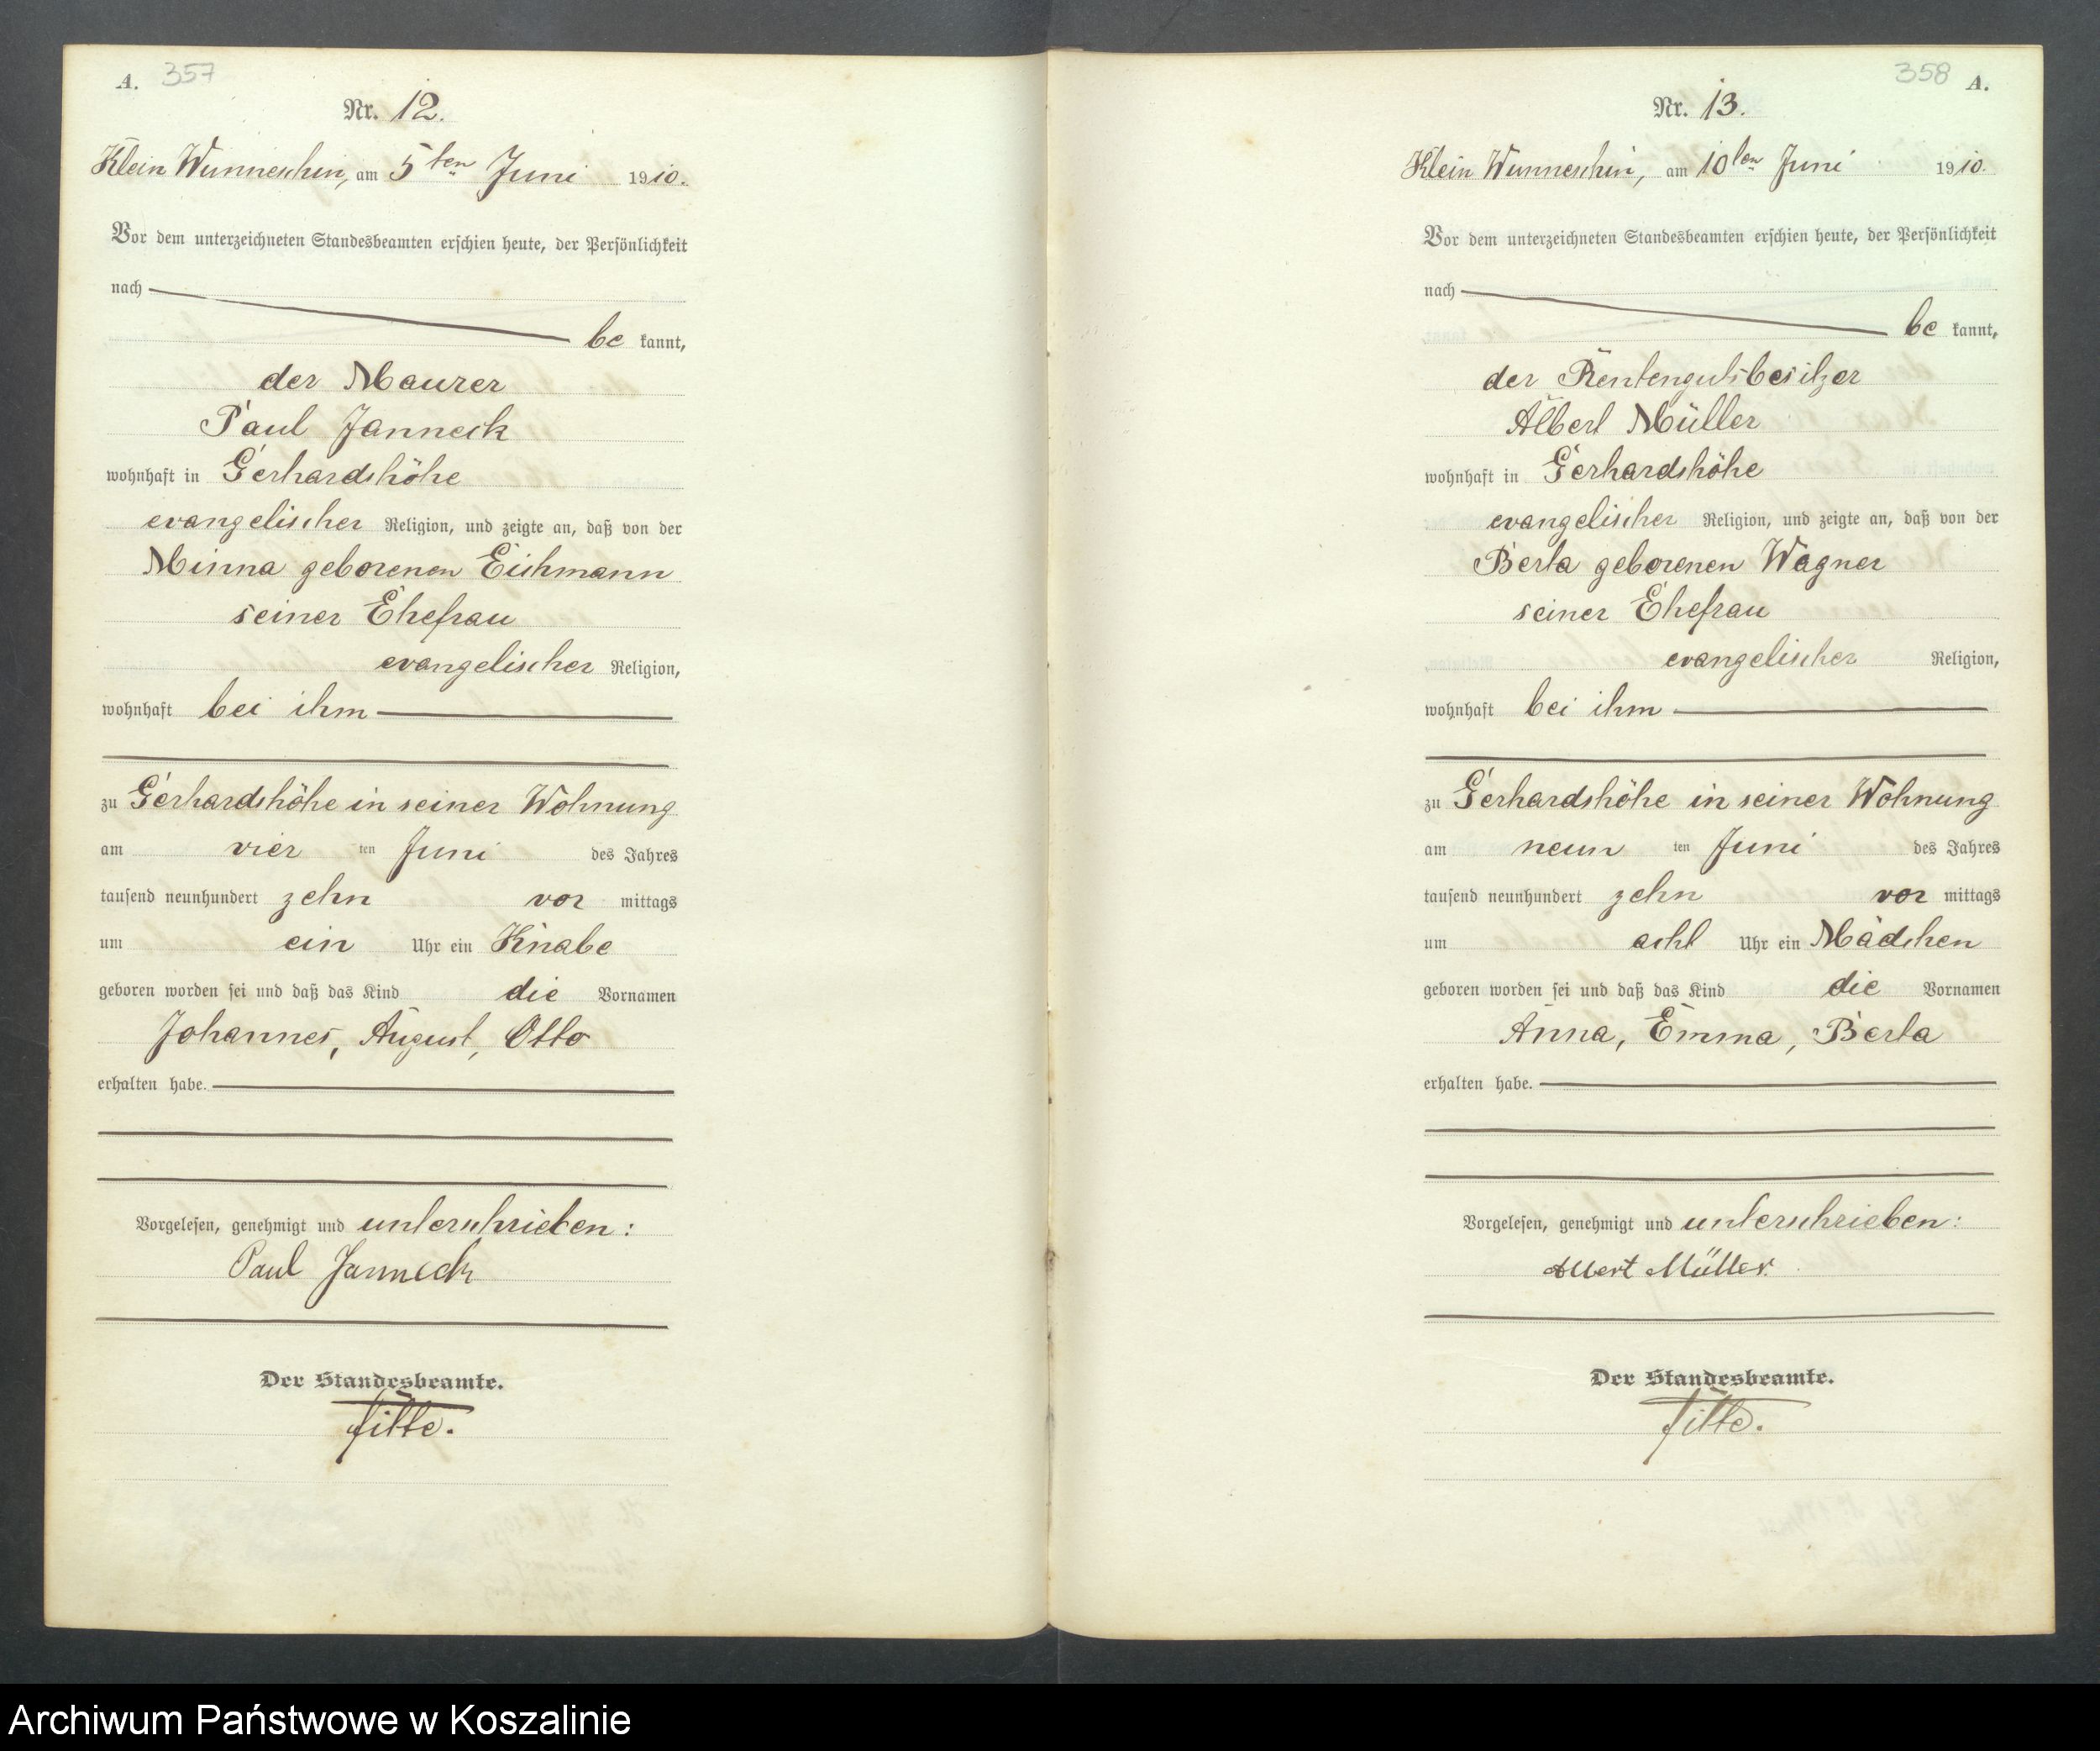 A. 357
Nr. 12.
Klein Wunneschin, am 5ten Juni 1910.
Vor dem unterzeichneten Standesbeamten erschien heute, der Persönlichkeit
nach
be kannt,
der Maurer
Paul Janneck
wohnhaft in Gerhardshöhe
evangelischer Religion, und zeigte an, daß von der
Minna geborenen Eichmann
seiner Ehefrau
evangelischer Religion,
wohnhaft bei ihm
zu Gerhardshöhe in seiner Wohnung
am vier ten Juni des Jahres
tausend neunhundert zehn vor mittags
um ein Uhr ein Knabe
geboren worden sei und daß das Kind die Vornamen
Johannes, August, Otto
erhalten habe.
Vorgelesen, genehmigt und unterschrieben:
Paul Janneck
Der Standesbeamte.
Titte.
358 A.
Nr. 13.
Klein Wunneschin, am 10ten Juni 1910.
Vor dem unterzeichneten Standesbeamten erschien heute, der Persönlichkeit
nach
be kannt,
der Rentengutsbesitzer
Albert Müller
wohnhaft in Gerhardshöhe
evangelischer Religion, und zeigte an, daß von der
Berta geborenen Wagner
seiner Ehefrau
evangelischer Religion,
wohnhaft bei ihm
zu Gerhardshöhe in seiner Wohnung
am neun ten Juni des Jahres
tausend neunhundert zehn vor mittags
um acht Uhr ein Mädchen
geboren worden sei und daß das Kind die Vornamen
Anna, Emma, Berta
erhalten habe.
Vorgelesen, genehmigt und unterschrieben:
Albert Müller.
Der Standesbeamte.
Titte.
Archiwum Państwowe w Koszalinie